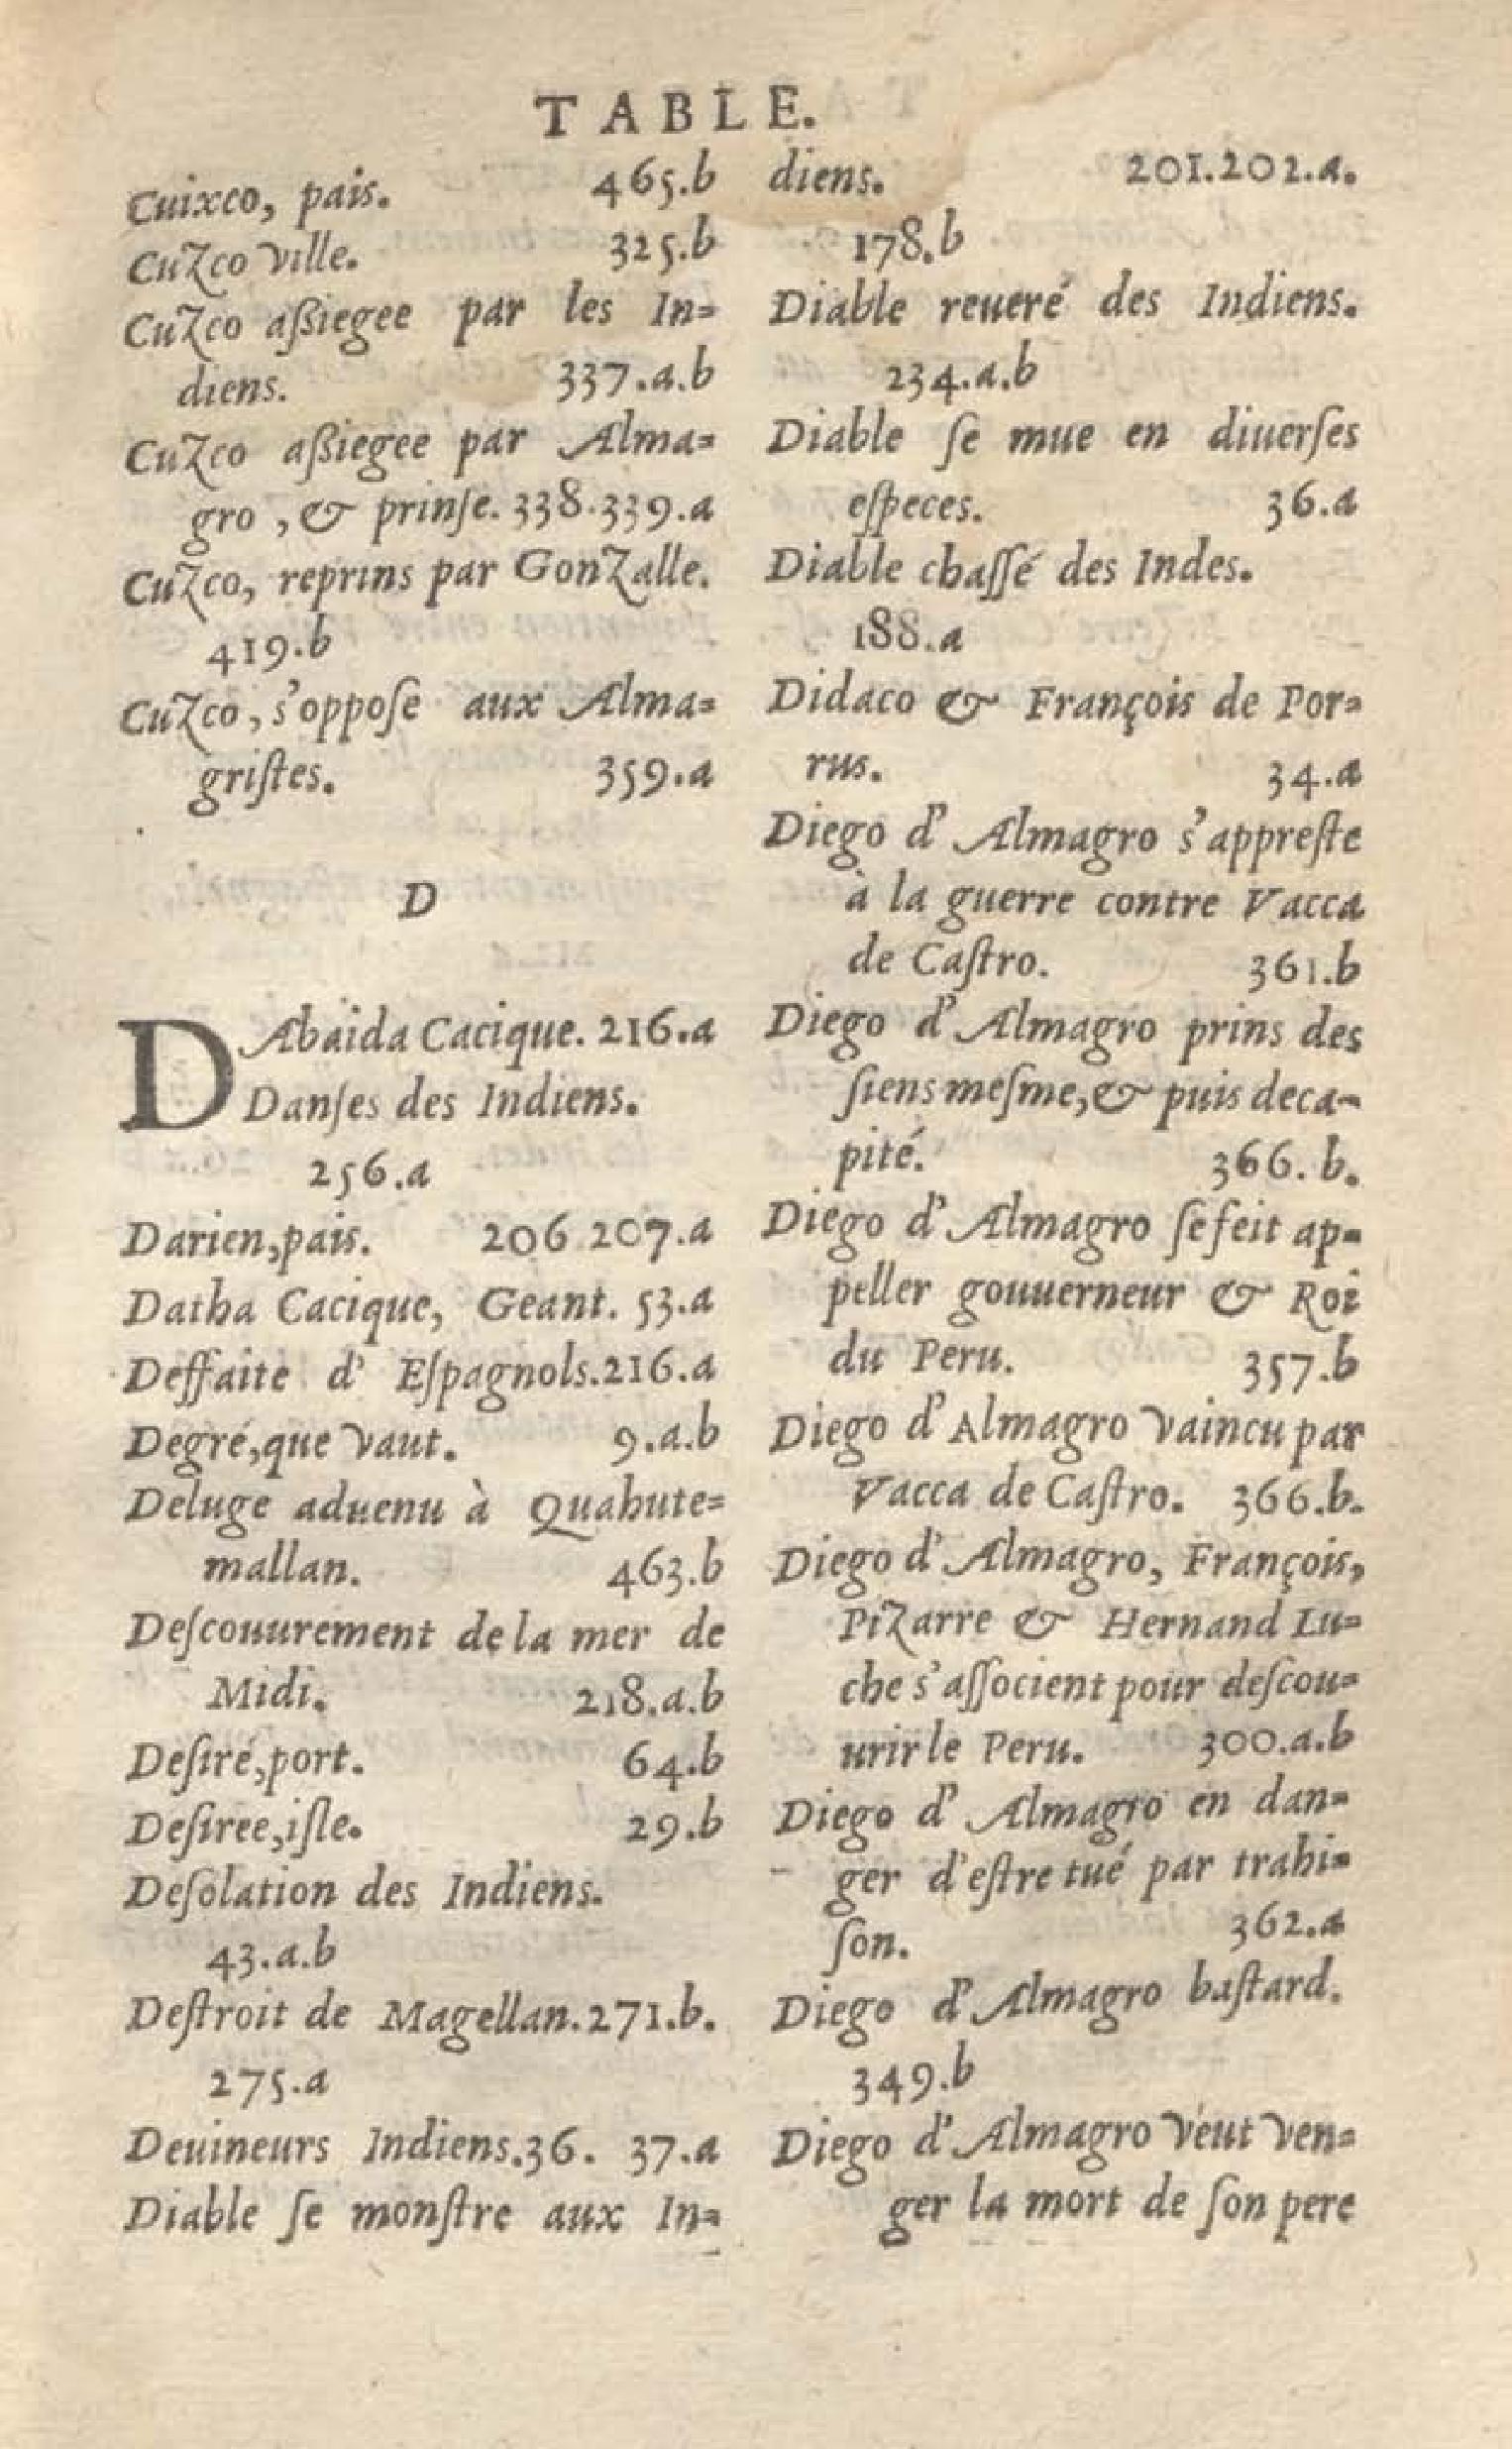 TABLE.
Cuixco, pais. 465.b
Cuzco ville. 325.b
Cuzco aßiegee par les In=
diens. 337.a.b
Cuzco aßiegee par Alma=
gro, & prinſe. 338.339.a
Cuzco, reprins par Gonzalle.
419.b
Cuzco, s'oppoſe aux Alma=
griſtes. 359.a
D
DAbaida Cacique. 216.a
Danſes des Indiens.
256.a
Darien, pais. 206 207.a
Datha Cacique, Geant. 53.a
Deffaite d' Eſpagnols. 216.a
Degré, que vaut. 9.a.b
Deluge aduenu à Quahute=
mallan. 463.b
Deſcouurement de la mer de
Midi. 218.a.b
Deſiré, port. 64.b
Deſiree, iſle. 29.b
Deſolation des Indiens.
43.a.b
Deſtroit de Magellan. 271.b.
275.a
Deuineurs Indiens. 36. 37.a
Diable ſe monſtre aux In=
diens. 201.202.a.
178.b
Diable reueré des Indiens.
234.a.b
Diable ſe mue en diuerſes
eſpeces. 36.a
Diable chaſſé des Indes.
188.a
Didaco & François de Por=
rus. 34.a
Diego d' Almagro s'appreſte
à la guerre contre Vacca
de Caſtro. 361.b
Diego d' Almagro prins des
ſiens meſme, & puis deca-
pité. 366. b.
Diego d' Almagro ſe feit ap=
peller gouuerneur & Roi
du Peru. 357.b
Diego d' Almagro vaincu par
Vacca de Caſtro. 366.b.
Diego d' Almagro, François,
Pizarre & Hernand Lu=
che s'aſſocient pour deſcou=
urir le Peru. 300.a.b
Diego d' Almagro en dan=
ger d'eſtre tué par trahi=
ſon. 362.a
Diego d' Almagro baſtard.
349.b
Diego d' Almagro veut ven=
ger la mort de ſon pere